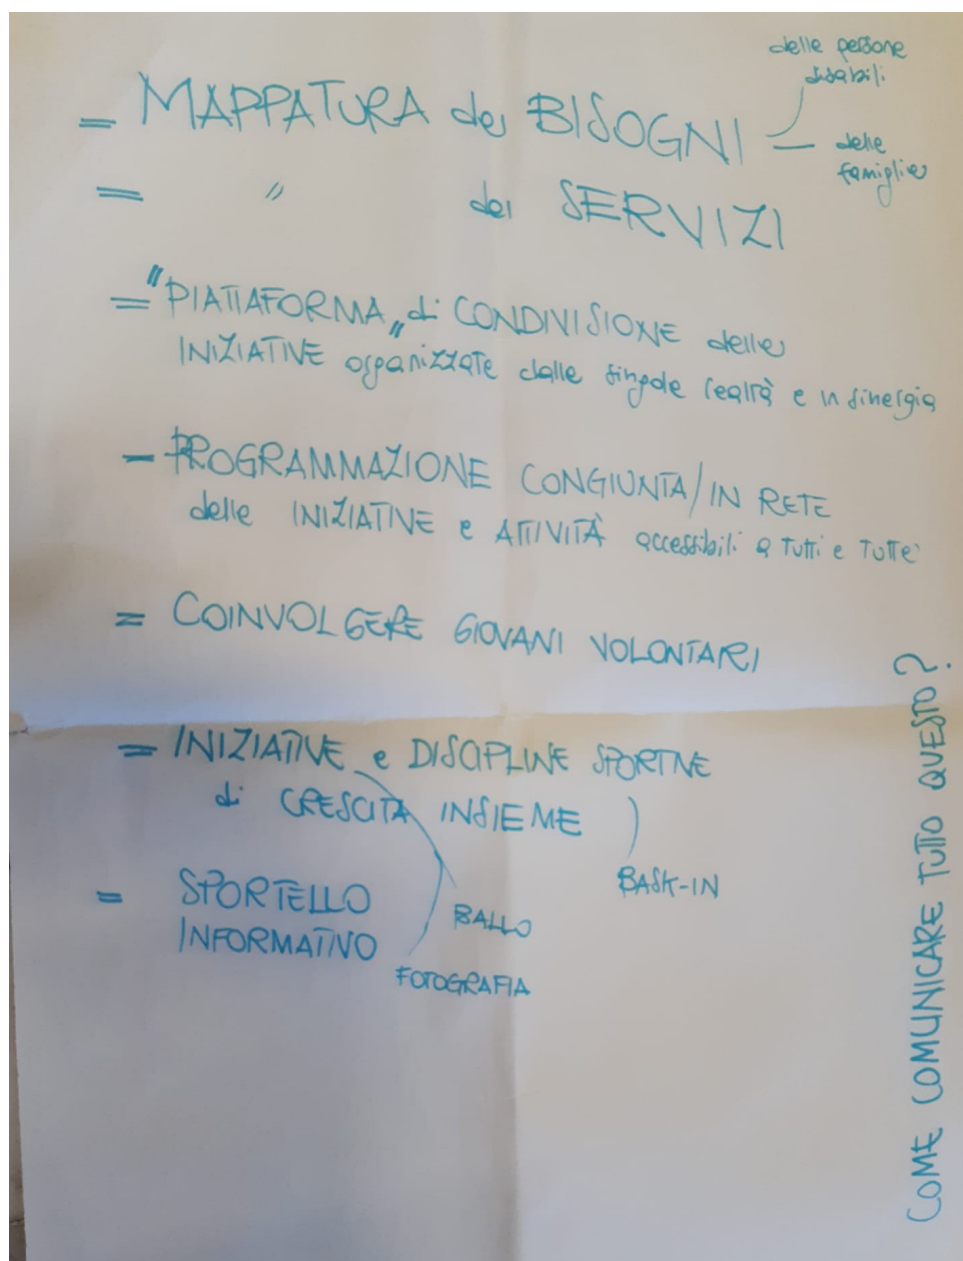 delle persone
disabili
= MAPPATURA dei BISOGNI — delle
famiglie
= " dei SERVIZI
= "PIATTAFORMA" di CONDIVISIONE delle
INIZIATIVE organizzate dalle singole realtà e in sinergia
- PROGRAMMAZIONE CONGIUNTA/IN RETE
delle INIZIATIVE e ATTIVITÀ accessibili a tutti e tutte
= COINVOLGERE GIOVANI VOLONTARI
= INIZIATIVE e DISCIPLINE SPORTIVE
di CRESCITA INSIEME
BASK-IN
= SPORTELLO
INFORMATIVO
BALLO
FOTOGRAFIA
COME COMUNICARE TUTTO QUESTO?